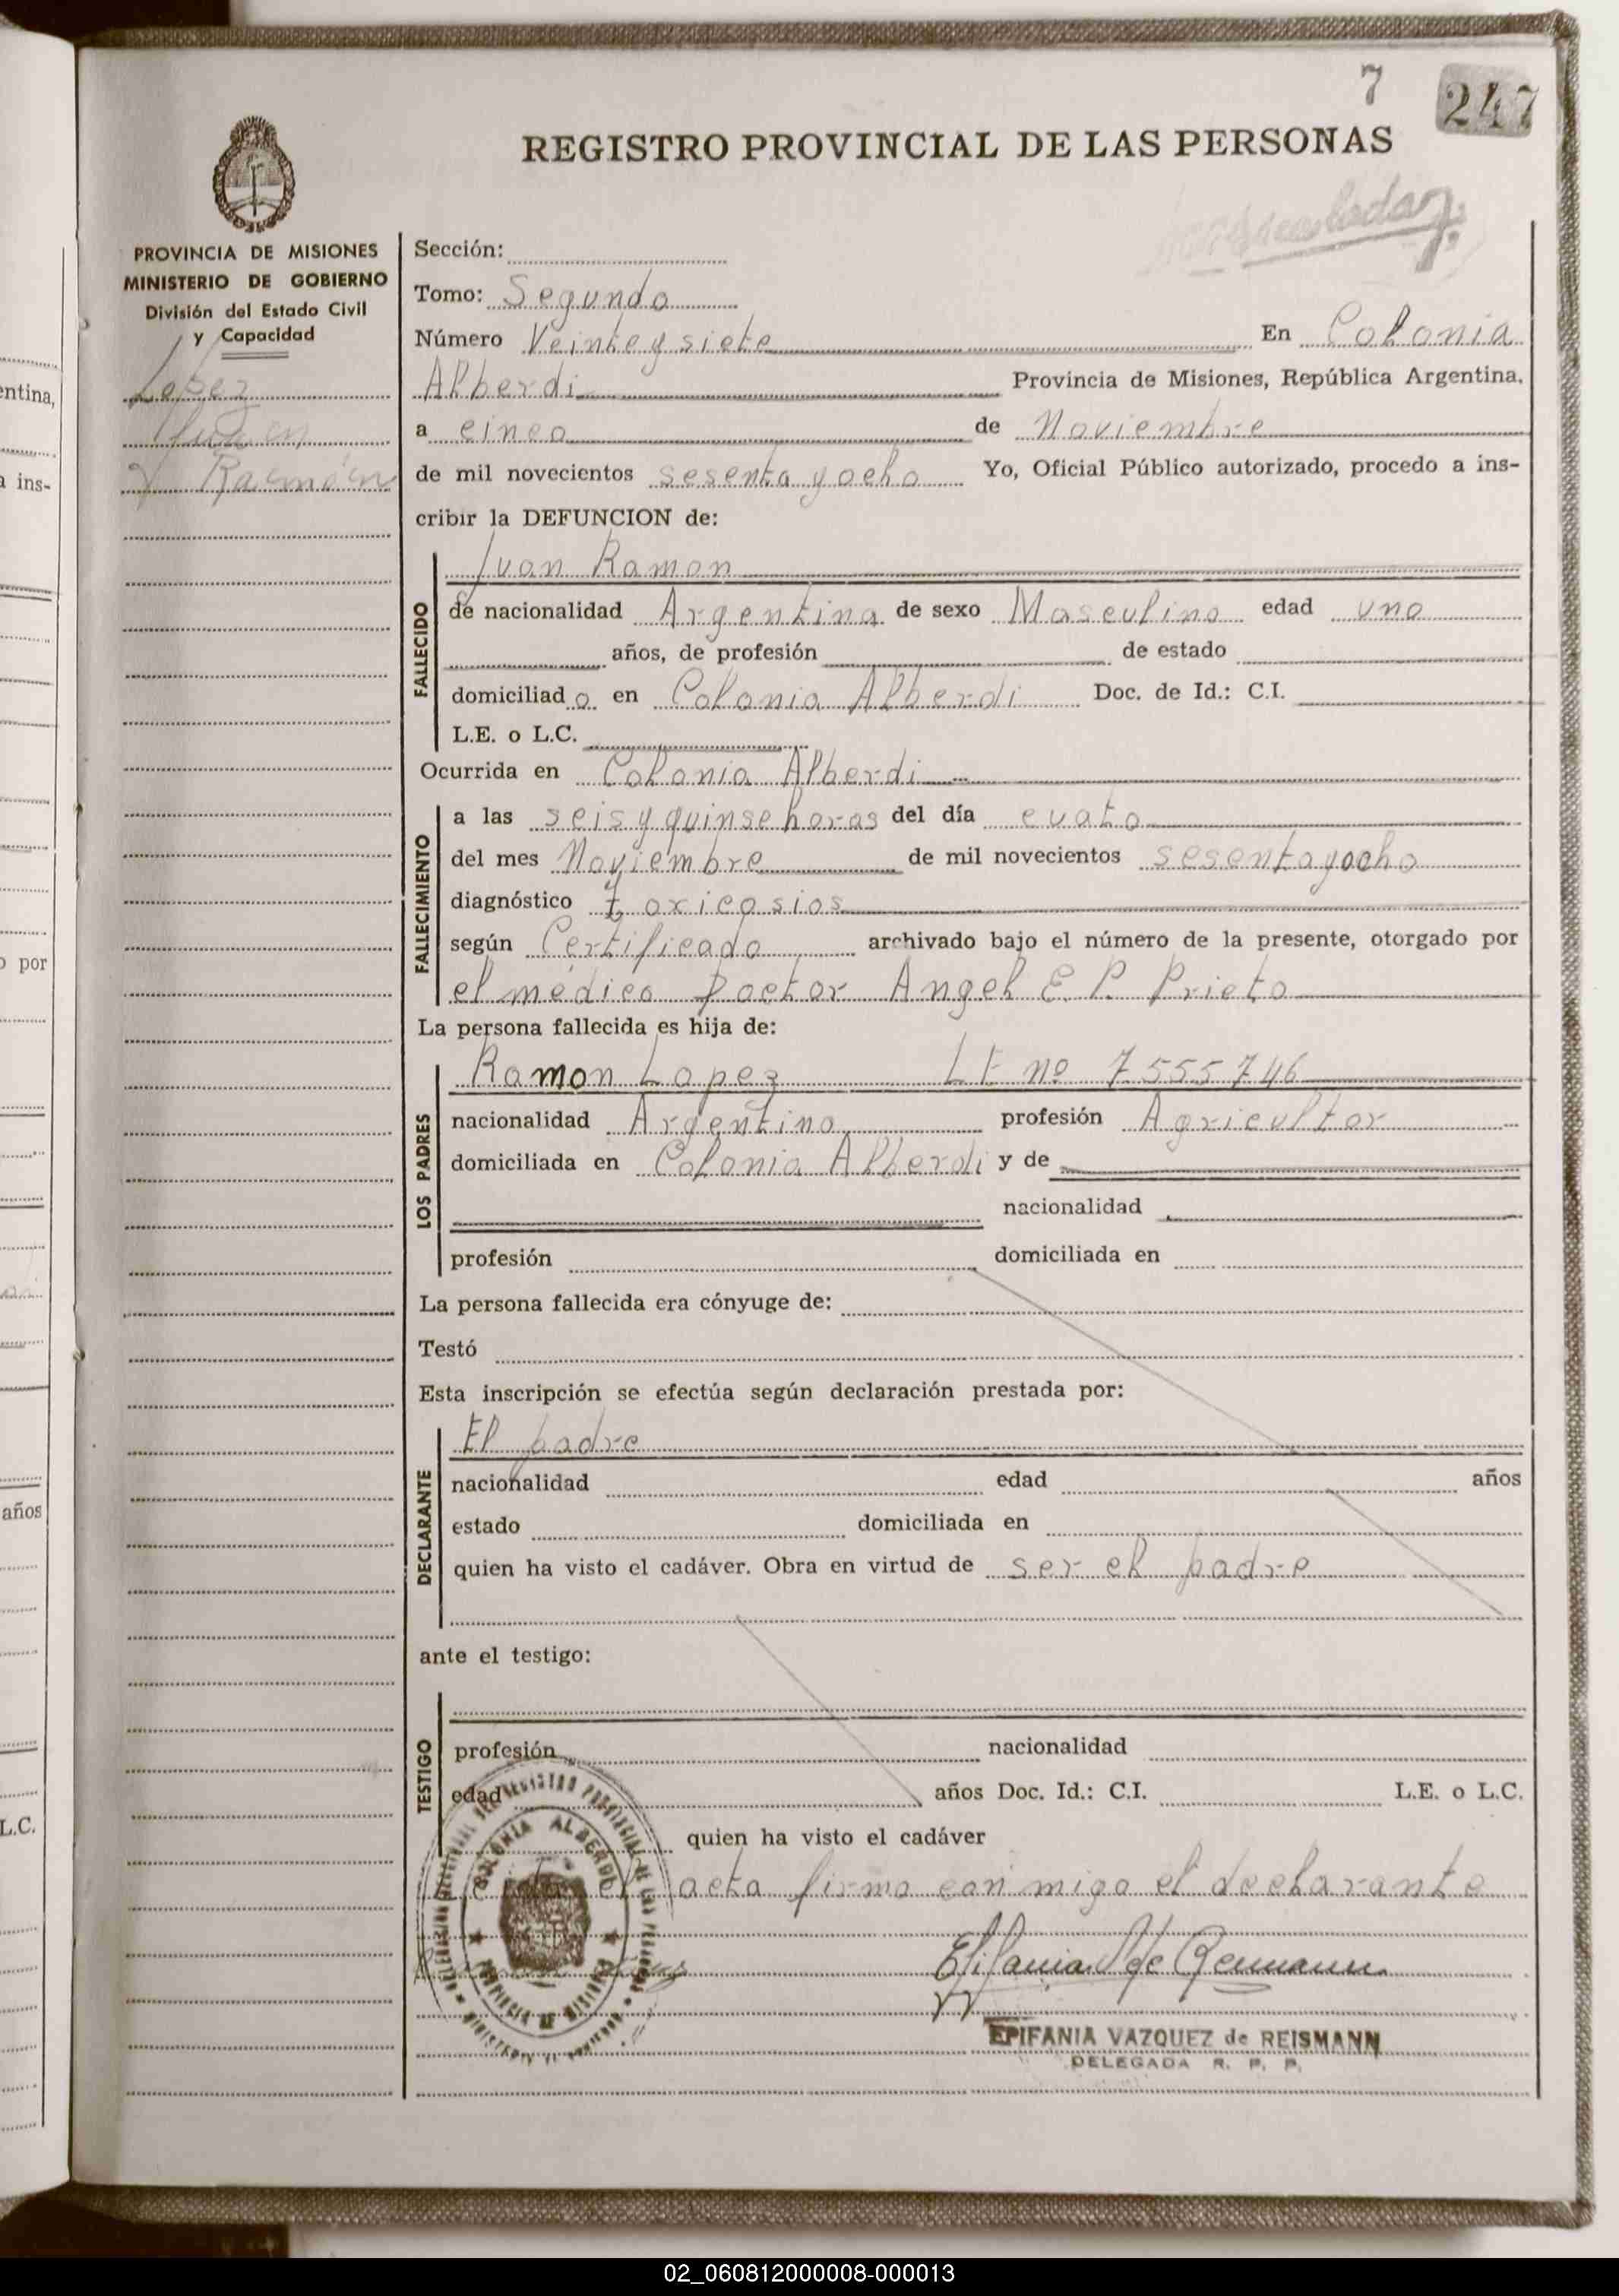 7
247
REGISTRO PROVINCIAL DE LAS PERSONAS
PROVINCIA DE MISIONES
MINISTERIO DE GOBIERNO
División del Estado Civil
y Capacidad
Lopez
Juan
Ramón
Sección:
Tomo: Segundo
Número Veinte y siete En Colonia
Alberdi Provincia de Misiones, República Argentina.
a cinco de Noviembre
de mil novecientos sesenta y ocho Yo, Oficial Público autorizado, procedo a ins-
cribir la DEFUNCION de:
FALLECIDO
Juan Ramon
de nacionalidad Argentina de sexo Masculino edad uno
años, de profesión de estado
domiciliado en Colonia Alberdi Doc. de Id.: C.I.
L.E. o L.C.
Ocurrida en Colonia Alberdi
FALLECIMIENTO
a las seis y quinse horas del día cuato
del mes Noviembre de mil novecientos sesenta y ocho
diagnóstico toxicosios
según Certificado archivado bajo el número de la presente, otorgado por
el médico Doctor Angel E. P. Prieto
La persona fallecida es hija de:
LOS PADRES
Ramon Lopez LE nº 7555746
nacionalidad Argentino profesión Agricultor
domiciliada en Colonia Alberdi y de
nacionalidad
profesión domiciliada en
La persona fallecida era cónyuge de:
Testó
Esta inscripción se efectúa según declaración prestada por:
DECLARANTE
El padre
nacionalidad edad años
estado domiciliada en
quien ha visto el cadáver. Obra en virtud de ser el padre
ante el testigo:
TESTIGO
profesión nacionalidad
edad años Doc. Id.: C.I. L.E. o L.C.
quien ha visto el cadáver
el acta firma conmigo el declarante
COLONIA ALBERDI
PROVINCIA DE MISIONES
Epifania V de Reismann
EPIFANIA VAZQUEZ de REISMANN
DELEGADA R. P. P.
entina,
a ins-
o por
años
L.C.
02_060812000008-000013